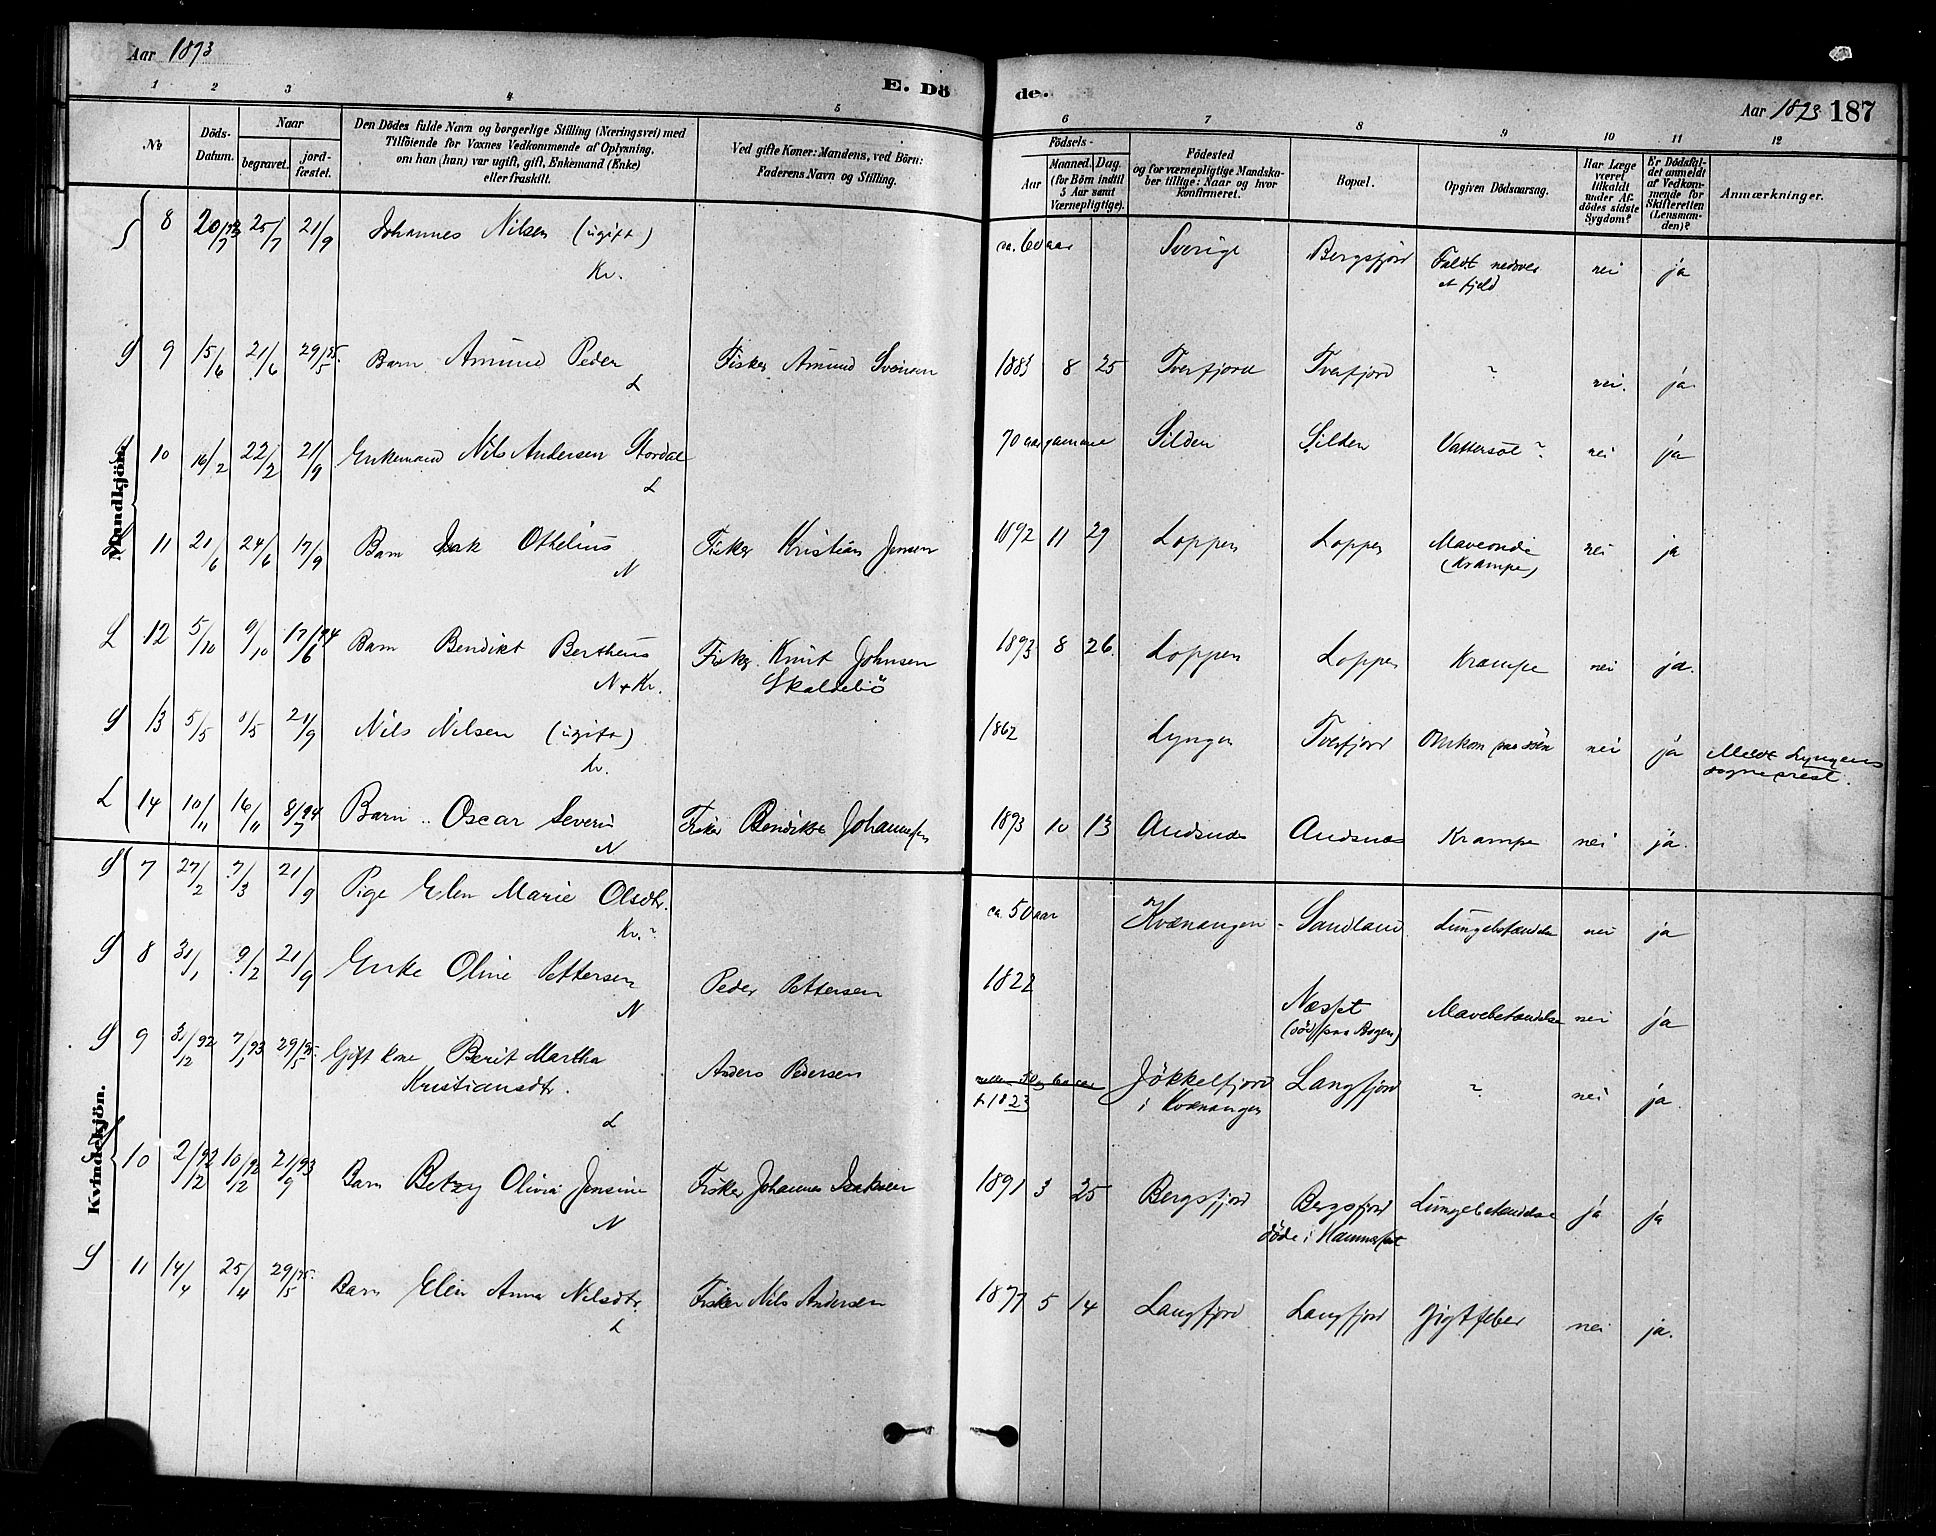 Aar 1893
E. Dö
de.
Aar 1893 187
1 2 3 4 5 6 7 8 9 10 11 12
No
Döds-Datum.
Naar
begravet.
jord-fæstet.
Den Dödes fulde Navn og borgerlige Stilling (Næringsvei) med
Tilföiende for Voxnes Vedkommende af Oplysning,
om han (hun) var ugift, gift, Enkemand (Enke)
eller fraskilt.
Ved gifte Koner: Mandens, ved Börn:
Faderens Navn og Stilling.
Födsels-
Aar
Maaned. Dag.
(for Börn indtil
5 Aar samt
Værnepligtige).
Födested
og for værnepligtige Mandska-
ber tillige: Naar og hvor
konfirmeret.
Bopæl.
Opgiven Dödsaarsag.
Har Læge
været
tilkaldt
under Af-
dödes sidste
Sygdom?
Er Dödsfal-
det anmeldt
af Vedkom-
mende for
Skifteretten
(Lensman-
den)?
Anmærkninger.
Mandkjön.
S 8 20/7 93 25/7 21/9 Johannes Nilsen (ugift) ca. 60 aar Sverige Bergsfjord Faldt nedover nei ja
Kr. et fjeld
S 9 15/6 21/6 29/5 95. Barn Amund Peder Fisker Amund Svensen 1883 8 25 Tverfjord Tverfjord ? nei. ja
L
10 16/2 22/2 21/9 Enkemand Nils Andersen Stordal 70 aar gammel Silden Silden Vattersot? nei ja
L
11 21/6 24/6 17/9 Barn Isak Othelius Fisker Kristian Jensen 1892 11 29 Loppen Loppen Maveonde nei ja
N (Krampe)
L 12 5/10 9/10 17/6 94 Barn Bendikt Bertheus Fisker Knut Johnsen 1893 8 26. Loppen Loppen Krampe nei ja.
N + Kr. Skaldebö
S 13 5/5 /5 21/9 Nils Nilsen (ugift) 1862 Lyngen Tverfjord Omkom paa söen nei ja Meldt Lyngens
Kr. sogneprest.
L 14 10/11 16/11 8/7 94 Barn Oscar Severin Fisker Bendikt Johannesen 1893 10 13 Andsnæs Andsnæs Krampe nei ja.
N
Kvindekjön.
S 7 27/2 7/3 21/9 Pige Elen Marie Olsdtr. ca. 50 aar Kvænangen Sandland Lungebetændelse nei ja
Kr.?
S 8 31/1 9/2 21/9 Enke Oline Pettersen Peder Pettersen 1822 Næsset Mavebetændelse nei ja
N (död paa Bogen)
S 9 31/12 92 7/3 93 29/5 95. Gift kone Berit Martha Anders Pedersen mellem 50 og 60 aar Jökkelfjord Langfjord ? nei ja.
Kristiansdtr. f. 1823 i Kvænangen
L
S 10 2/12 92 10/12 92 21/9 93 Barn Betzy Olivia Jensine Fisker Johannes Isaksen 1891 3 25 Bergsfjord Bergsfjord Lungebetændelse ja ja
N döde i Hammerfest
S 11 14/4 25/4 29/5 95. Barn Elen Anna Nilsdtr. Fisker Nils Andersen 1877 5 14 Langfjord Langfjord Gigtfeber nei ja.
L